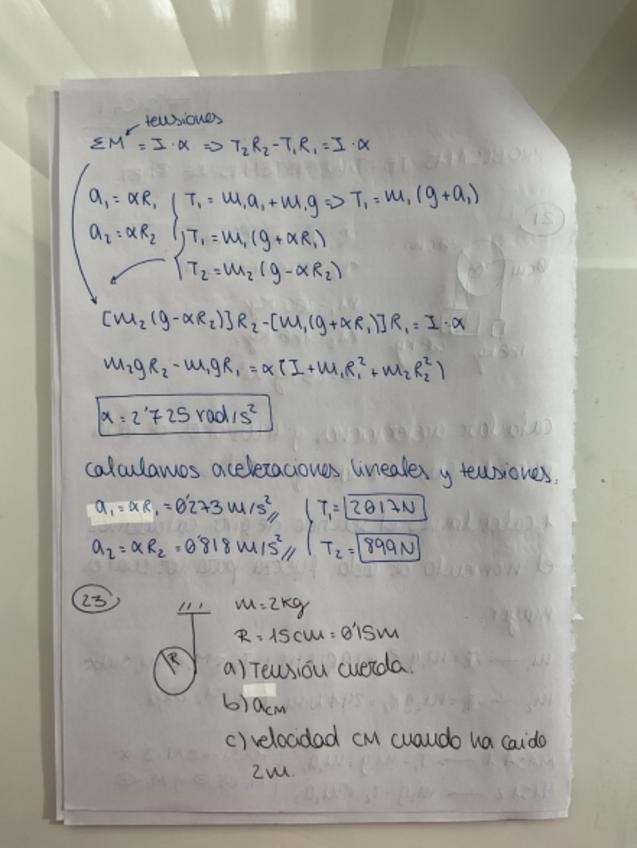 tensiones
ΣM = I·α ⇒ T₂R₂-T₁R₁ = I·α
a₁ = αR₁ T₁ = m₁a₁+m₁g ⇒ T₁ = m₁(g+a₁)
a₂ = αR₂ T₁ = m₁(g+αR₁)
T₂ = m₂(g-αR₂)
[m₂(g-αR₂)]R₂-[m₁(g+αR₁)]R₁ = I·α
m₂gR₂-m₁gR₁ = α[I+m₁R₁²+m₂R₂²]
α = 2'725 rad/s²
calculamos aceleraciones lineales y tensiones.
a₁ = αR₁ = 0'273 m/s² T₁ = 2017N
a₂ = αR₂ = 0'818 m/s² T₂ = 899N
23 m = 2kg
R R = 15cm = 0'15m
a) Tensión cuerda.
b) aCM
c) velocidad CM cuando ha caido
2m.